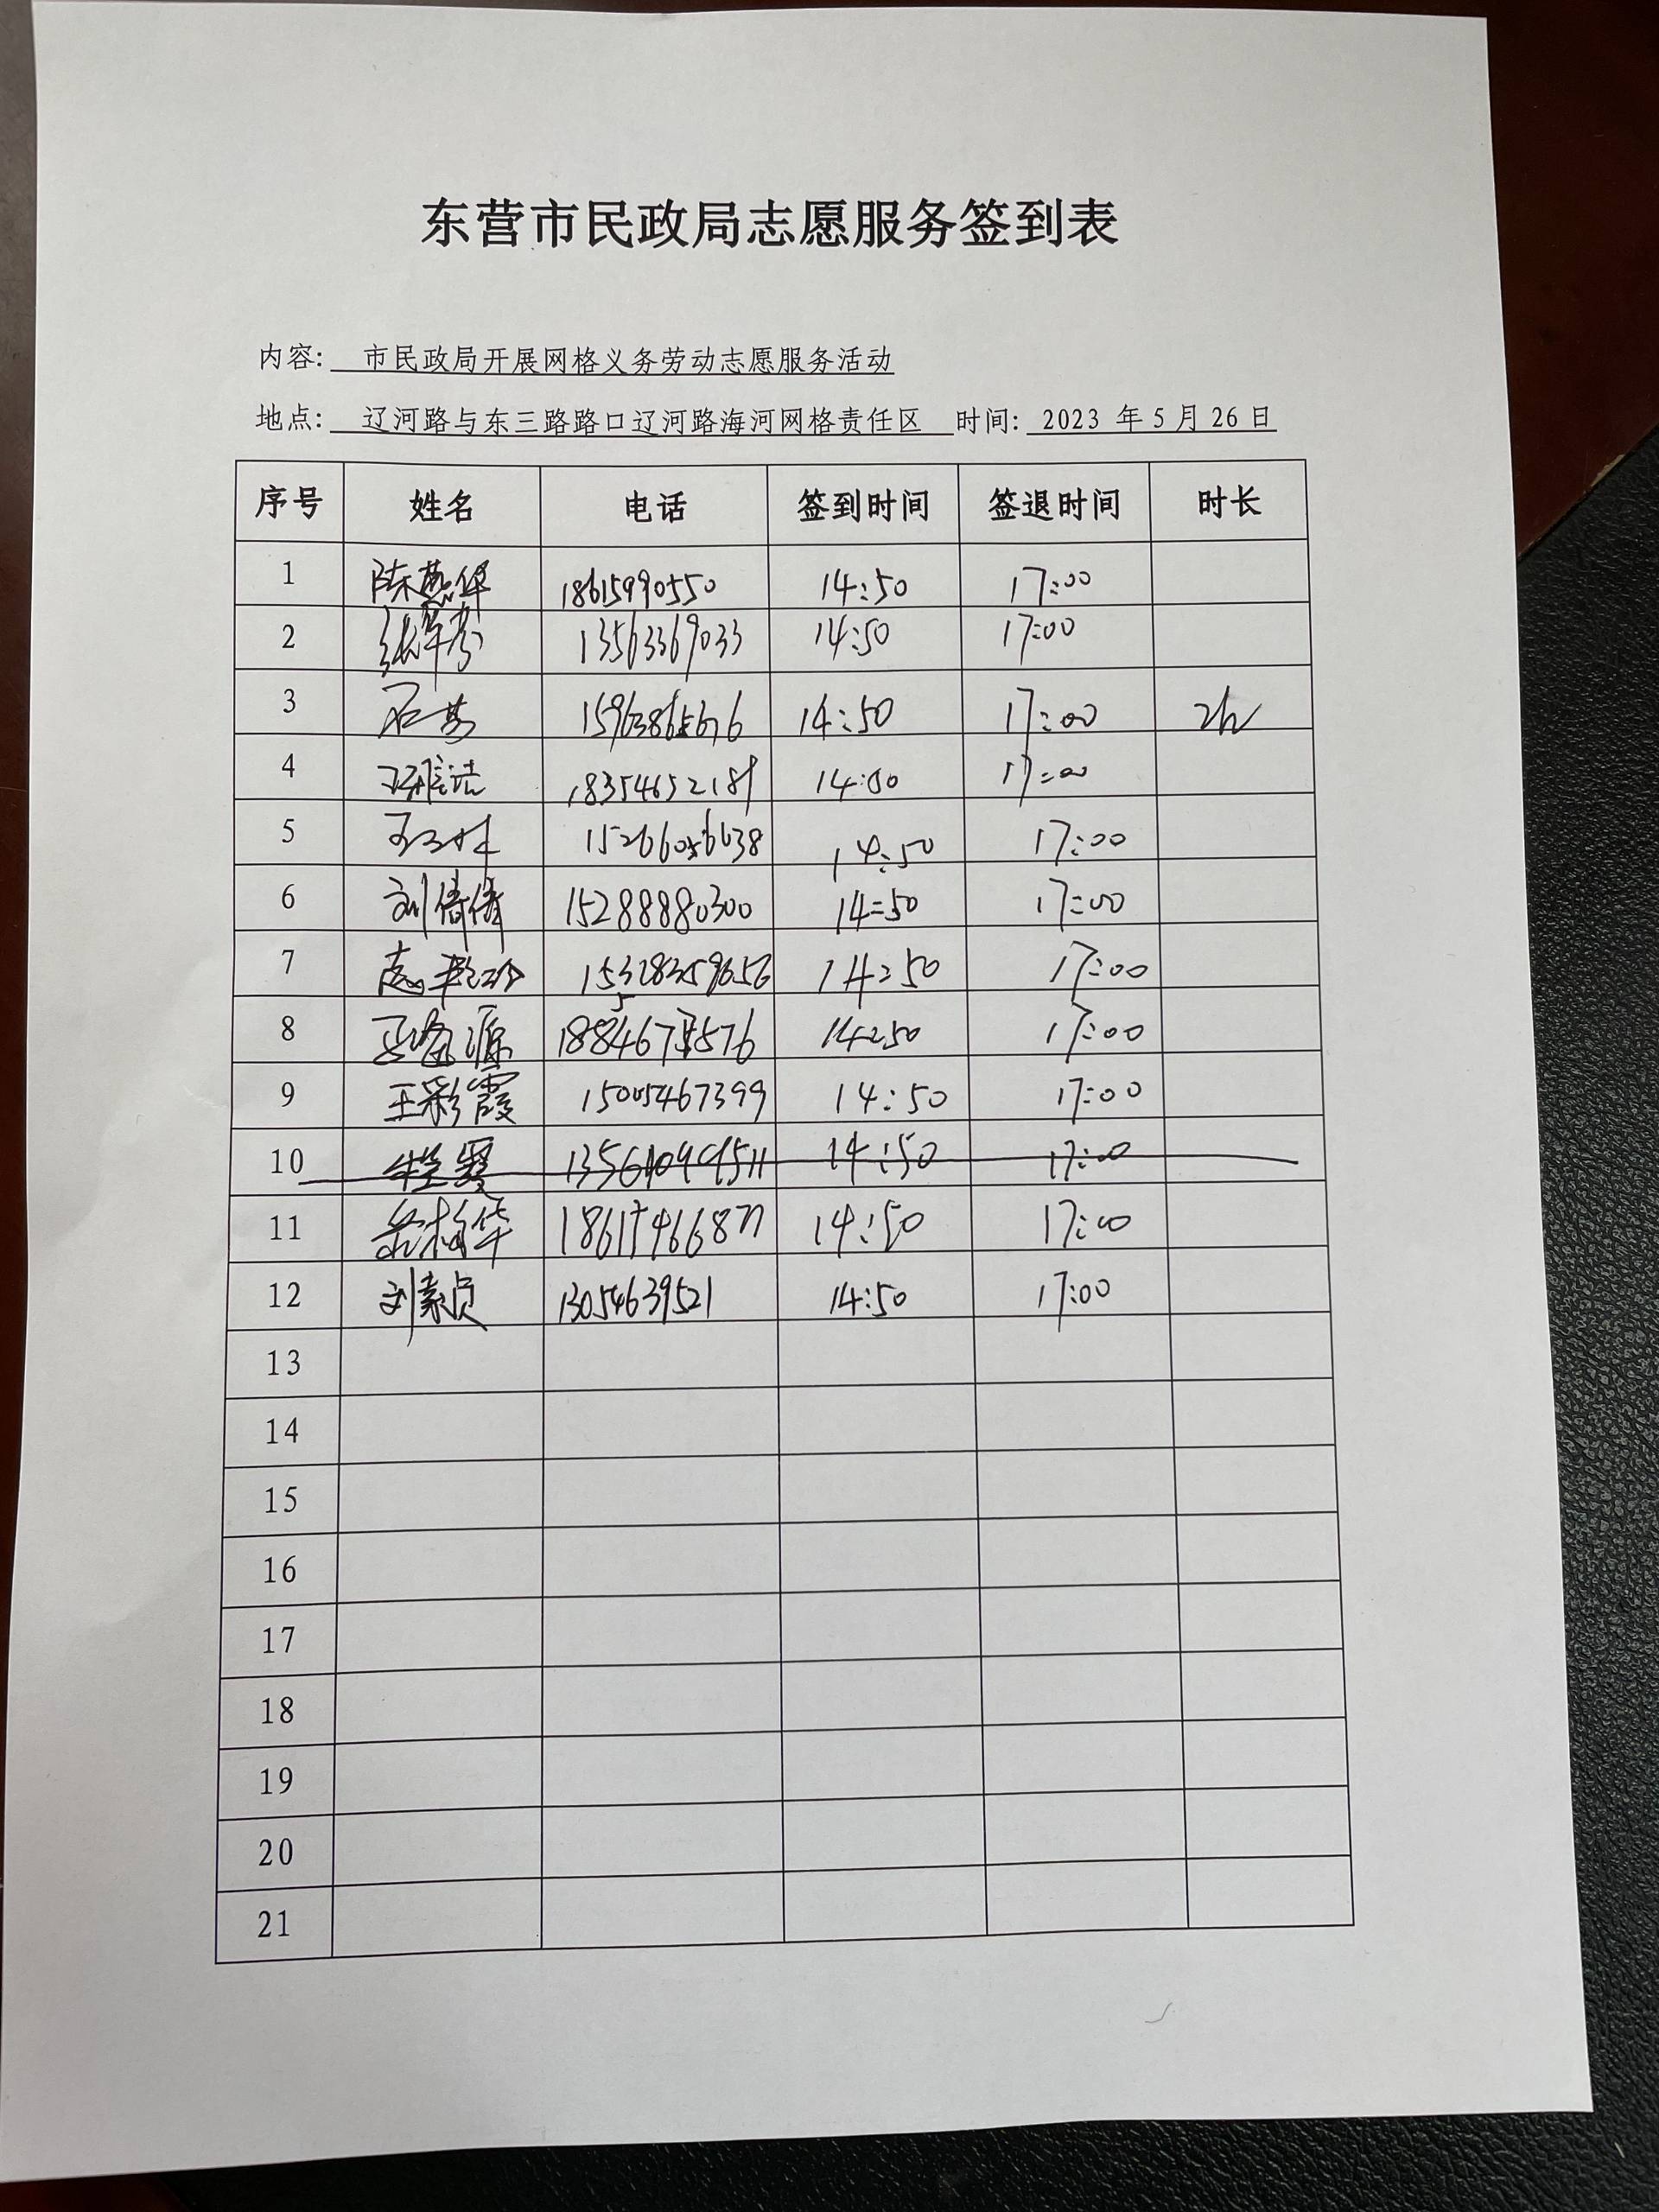 东营市民政局志愿服务签到表
内容: 市民政局开展网格义务劳动志愿服务活动
地点: 辽河路与东三路路口辽河路海河网格责任区 时间: 2023 年 5 月 26 日
序号 姓名 电话 签到时间 签退时间 时长
1 陈燕华 18615990550 14:50 17:00
2 13563369033 14:50 17:00
3 14:50 17:00 2h
4 18354652189 14:50 17:00
5 14:50 17:00
6 刘倩倩 15288880300 14:50 17:00
7 14:50 17:00
8 14:50 17:00
9 王彩霞 15005467399 14:50 17:00
10 14:50 17:00
11 14:50 17:00
12 刘素贞 13054639521 14:50 17:00
13
14
15
16
17
18
19
20
21